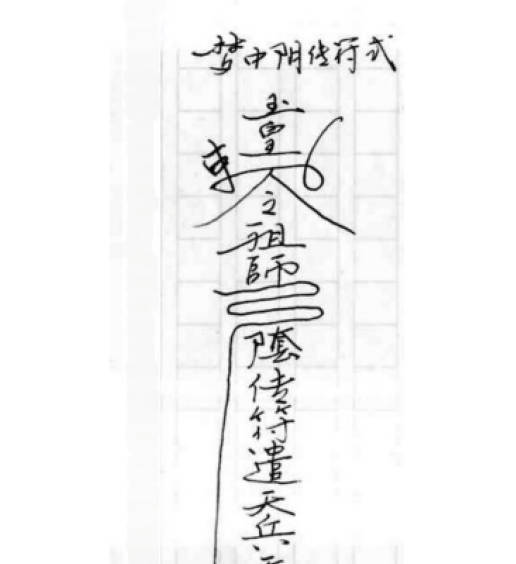 梦中阴传符式
玉皇
之祖師
陰传符遣天兵